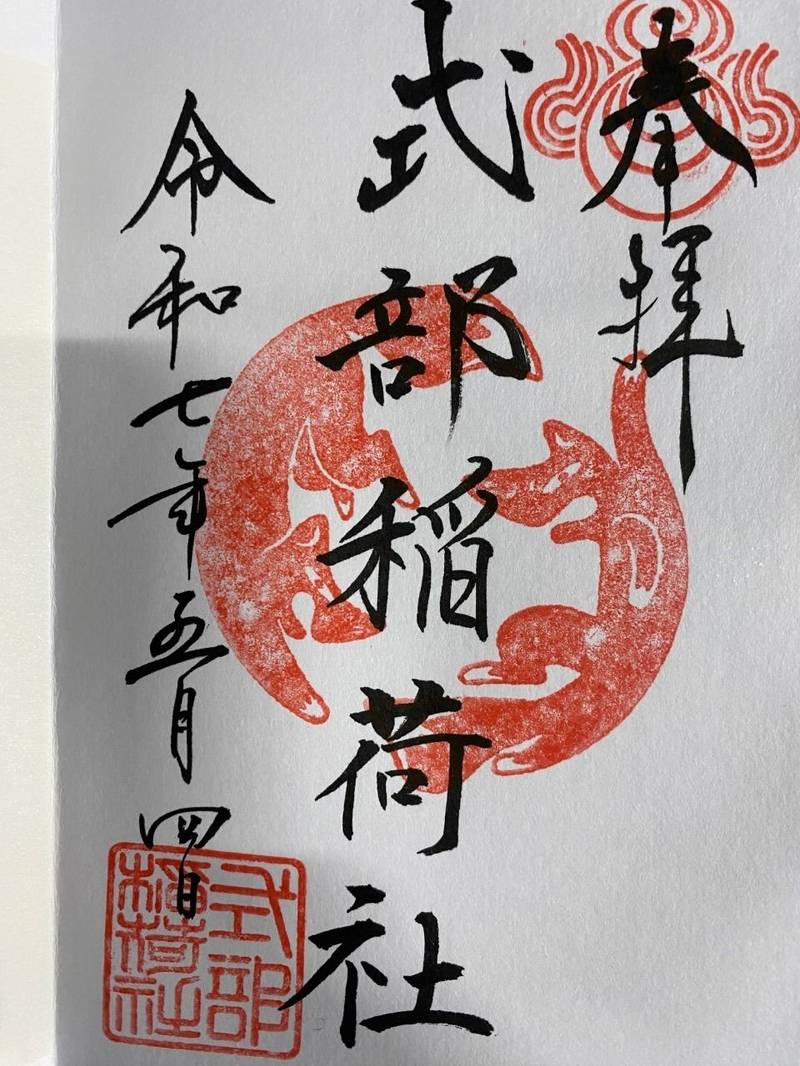 奉拝
式部稲荷社
令和七年五月四日
式部
稲荷社